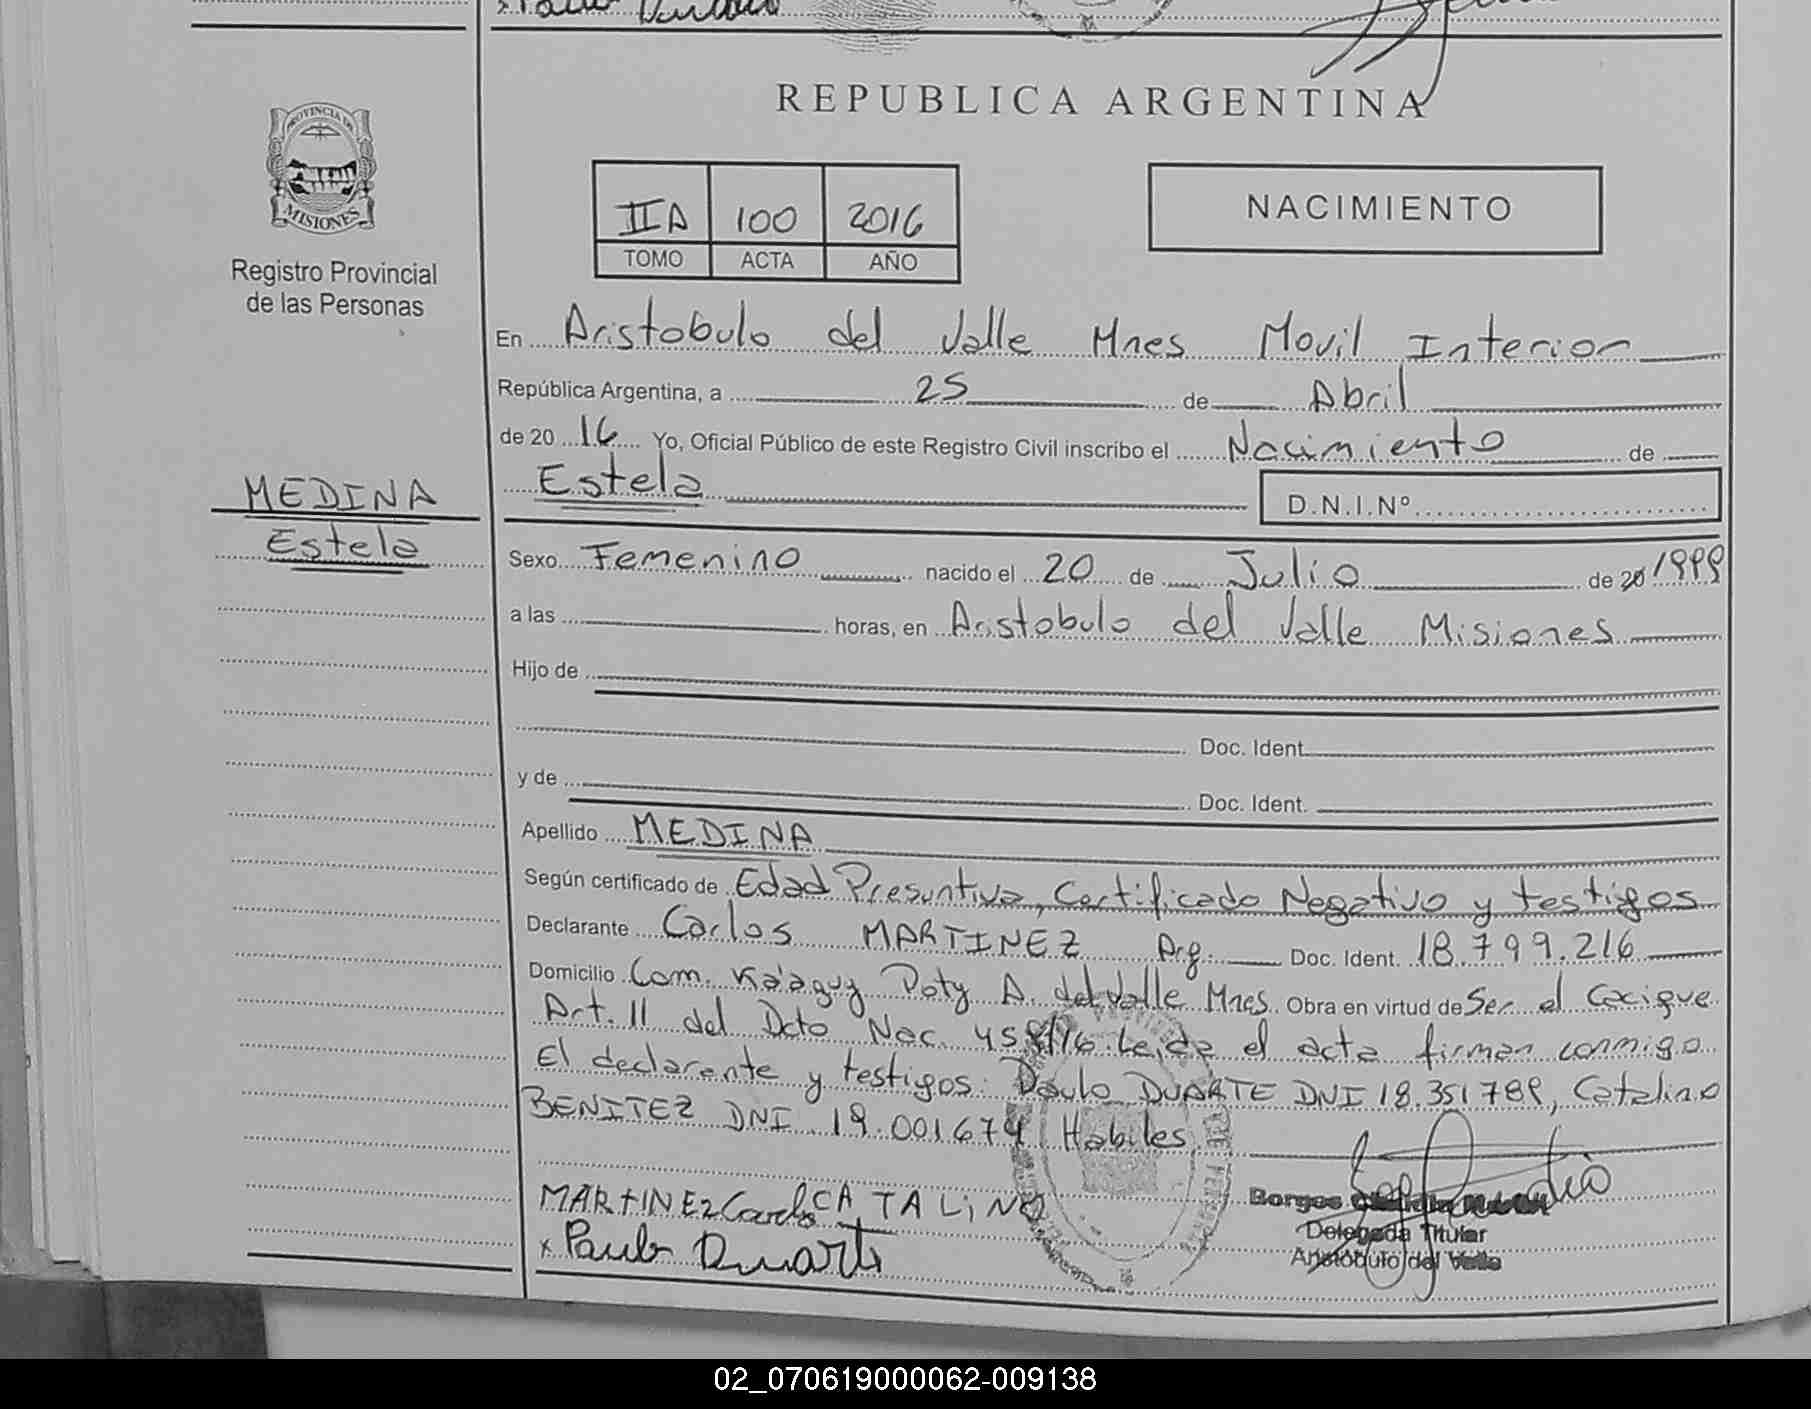 REPUBLICA ARGENTINA
PROVINCIA DE
MISIONES
Registro Provincial
de las Personas
IIA 100 2016
TOMO ACTA AÑO
NACIMIENTO
En Aristobulo del Valle Mnes Movil Interior
República Argentina, a 25 de Abril
de 20 16 Yo, Oficial Público de este Registro Civil inscribo el Nacimiento de
Estela D.N.I.Nº
MEDINA
Estela
Sexo Femenino nacido el 20 de Julio de 20 1999
a las horas, en Aristobulo del Valle Misiones
Hijo de
Doc. Ident.
y de
Doc. Ident.
Apellido MEDINA
Según certificado de Edad Presuntiva, Certificado Negativo y testigos
Declarante Carlos MARTINEZ Arg. Doc. Ident. 18.799.216
Domicilio Com. Ka'aguy Poty A. del Valle Mnes. Obra en virtud de Ser el Cacique
Art. 11 del Dcto Nac. Leida el acta firman conmigo
El declarante y testigos: Paulo DUARTE DNI 18.351789, Catalino
BENITEZ DNI 19.001674 Habiles
MARTINEZ Carlos CATALINO
x Paulo Duarte
Borges
Delegada Titular
Aristóbulo del Valle
02_070619000062-009138